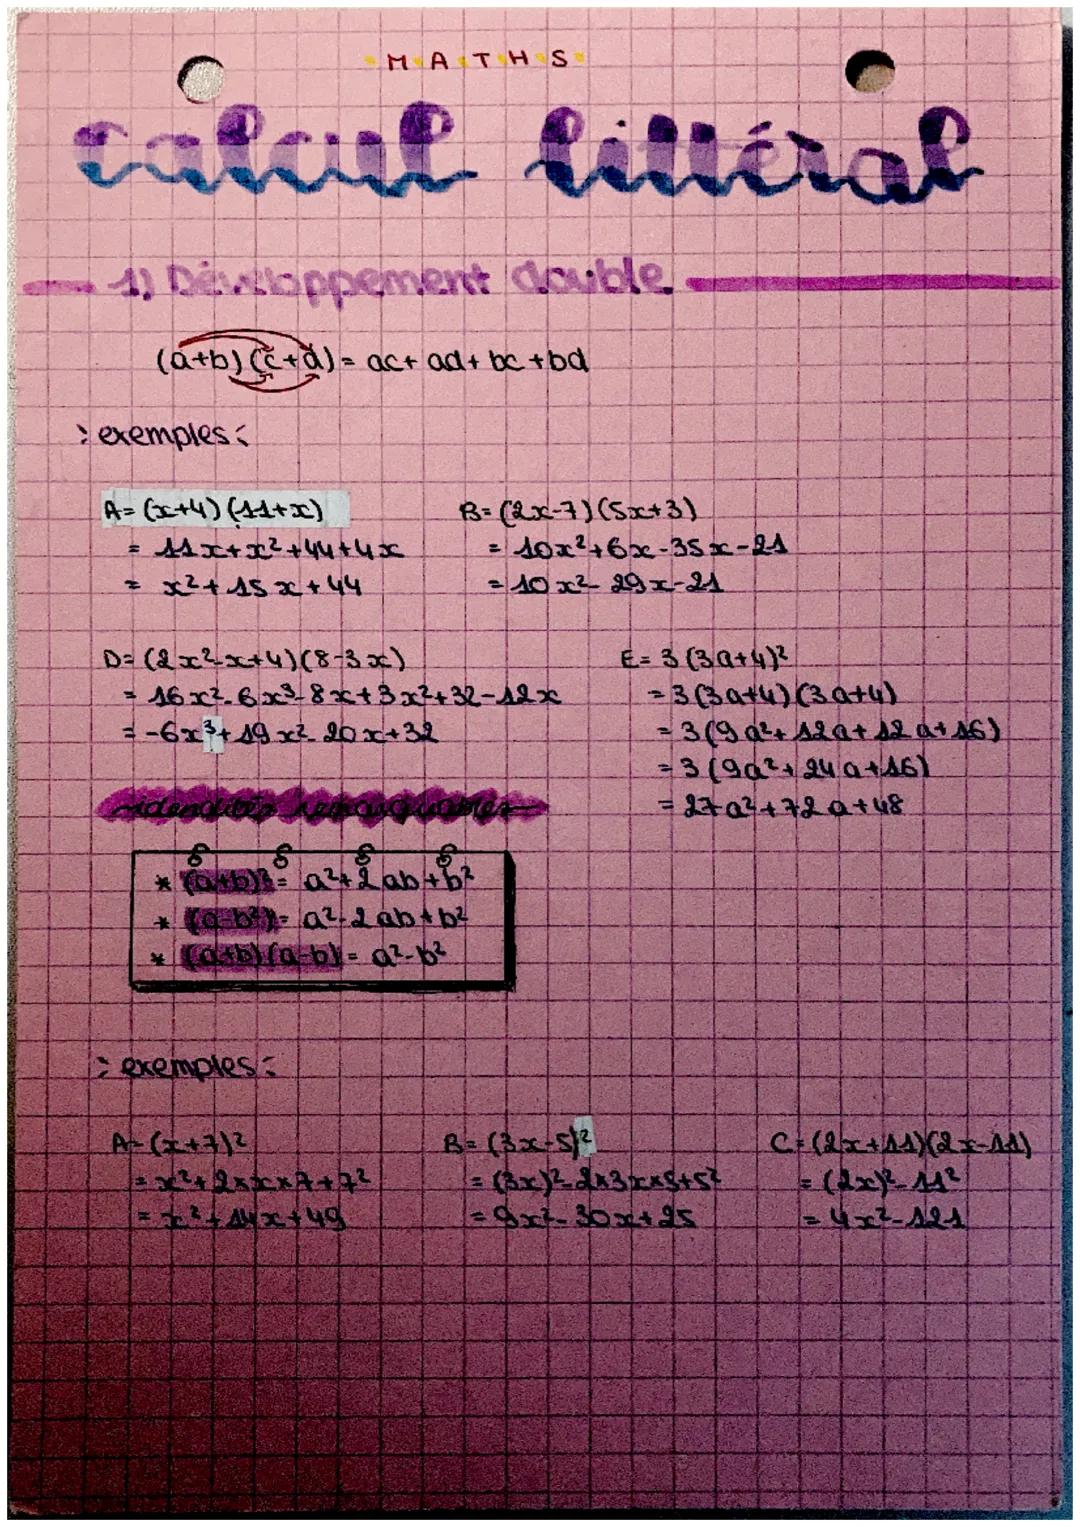 MATHS
calcul littéral
1) Développement double
(a+b)(c+d) = ac + ad + bc + bd
exemples :
A = (x+4)(11+x)
= 11x + x² + 44 + 4x
= x² + 15x + 44
B = (2x-7)(5x+3)
= 10x² + 6x - 35x - 21
= 10x² - 29x - 21
D = (2x²-x+4)(8-3x)
= 16x² - 6x³ - 8x + 3x² + 32 - 12x
= -6x³ + 19x² - 20x + 32
E = 3(3a+4)²
= 3(3a+4)(3a+4)
= 3(9a² + 12a + 12a + 16)
= 3(9a² + 24a + 16)
= 27a² + 72a + 48
idendités remarquables
* (a+b)² = a² + 2ab + b²
* (a-b²) = a² - 2ab + b²
* (a+b)(a-b) = a² - b²
exemples :
A = (x+7)²
= x² + 2×x×7 + 7²
= x² + 14x + 49
B = (3x-5)²
= (3x)² - 2×3x×5 + 5²
= 9x² - 30x + 25
C = (2x+11)(2x-11)
= (2x)² - 11²
= 4x² - 121